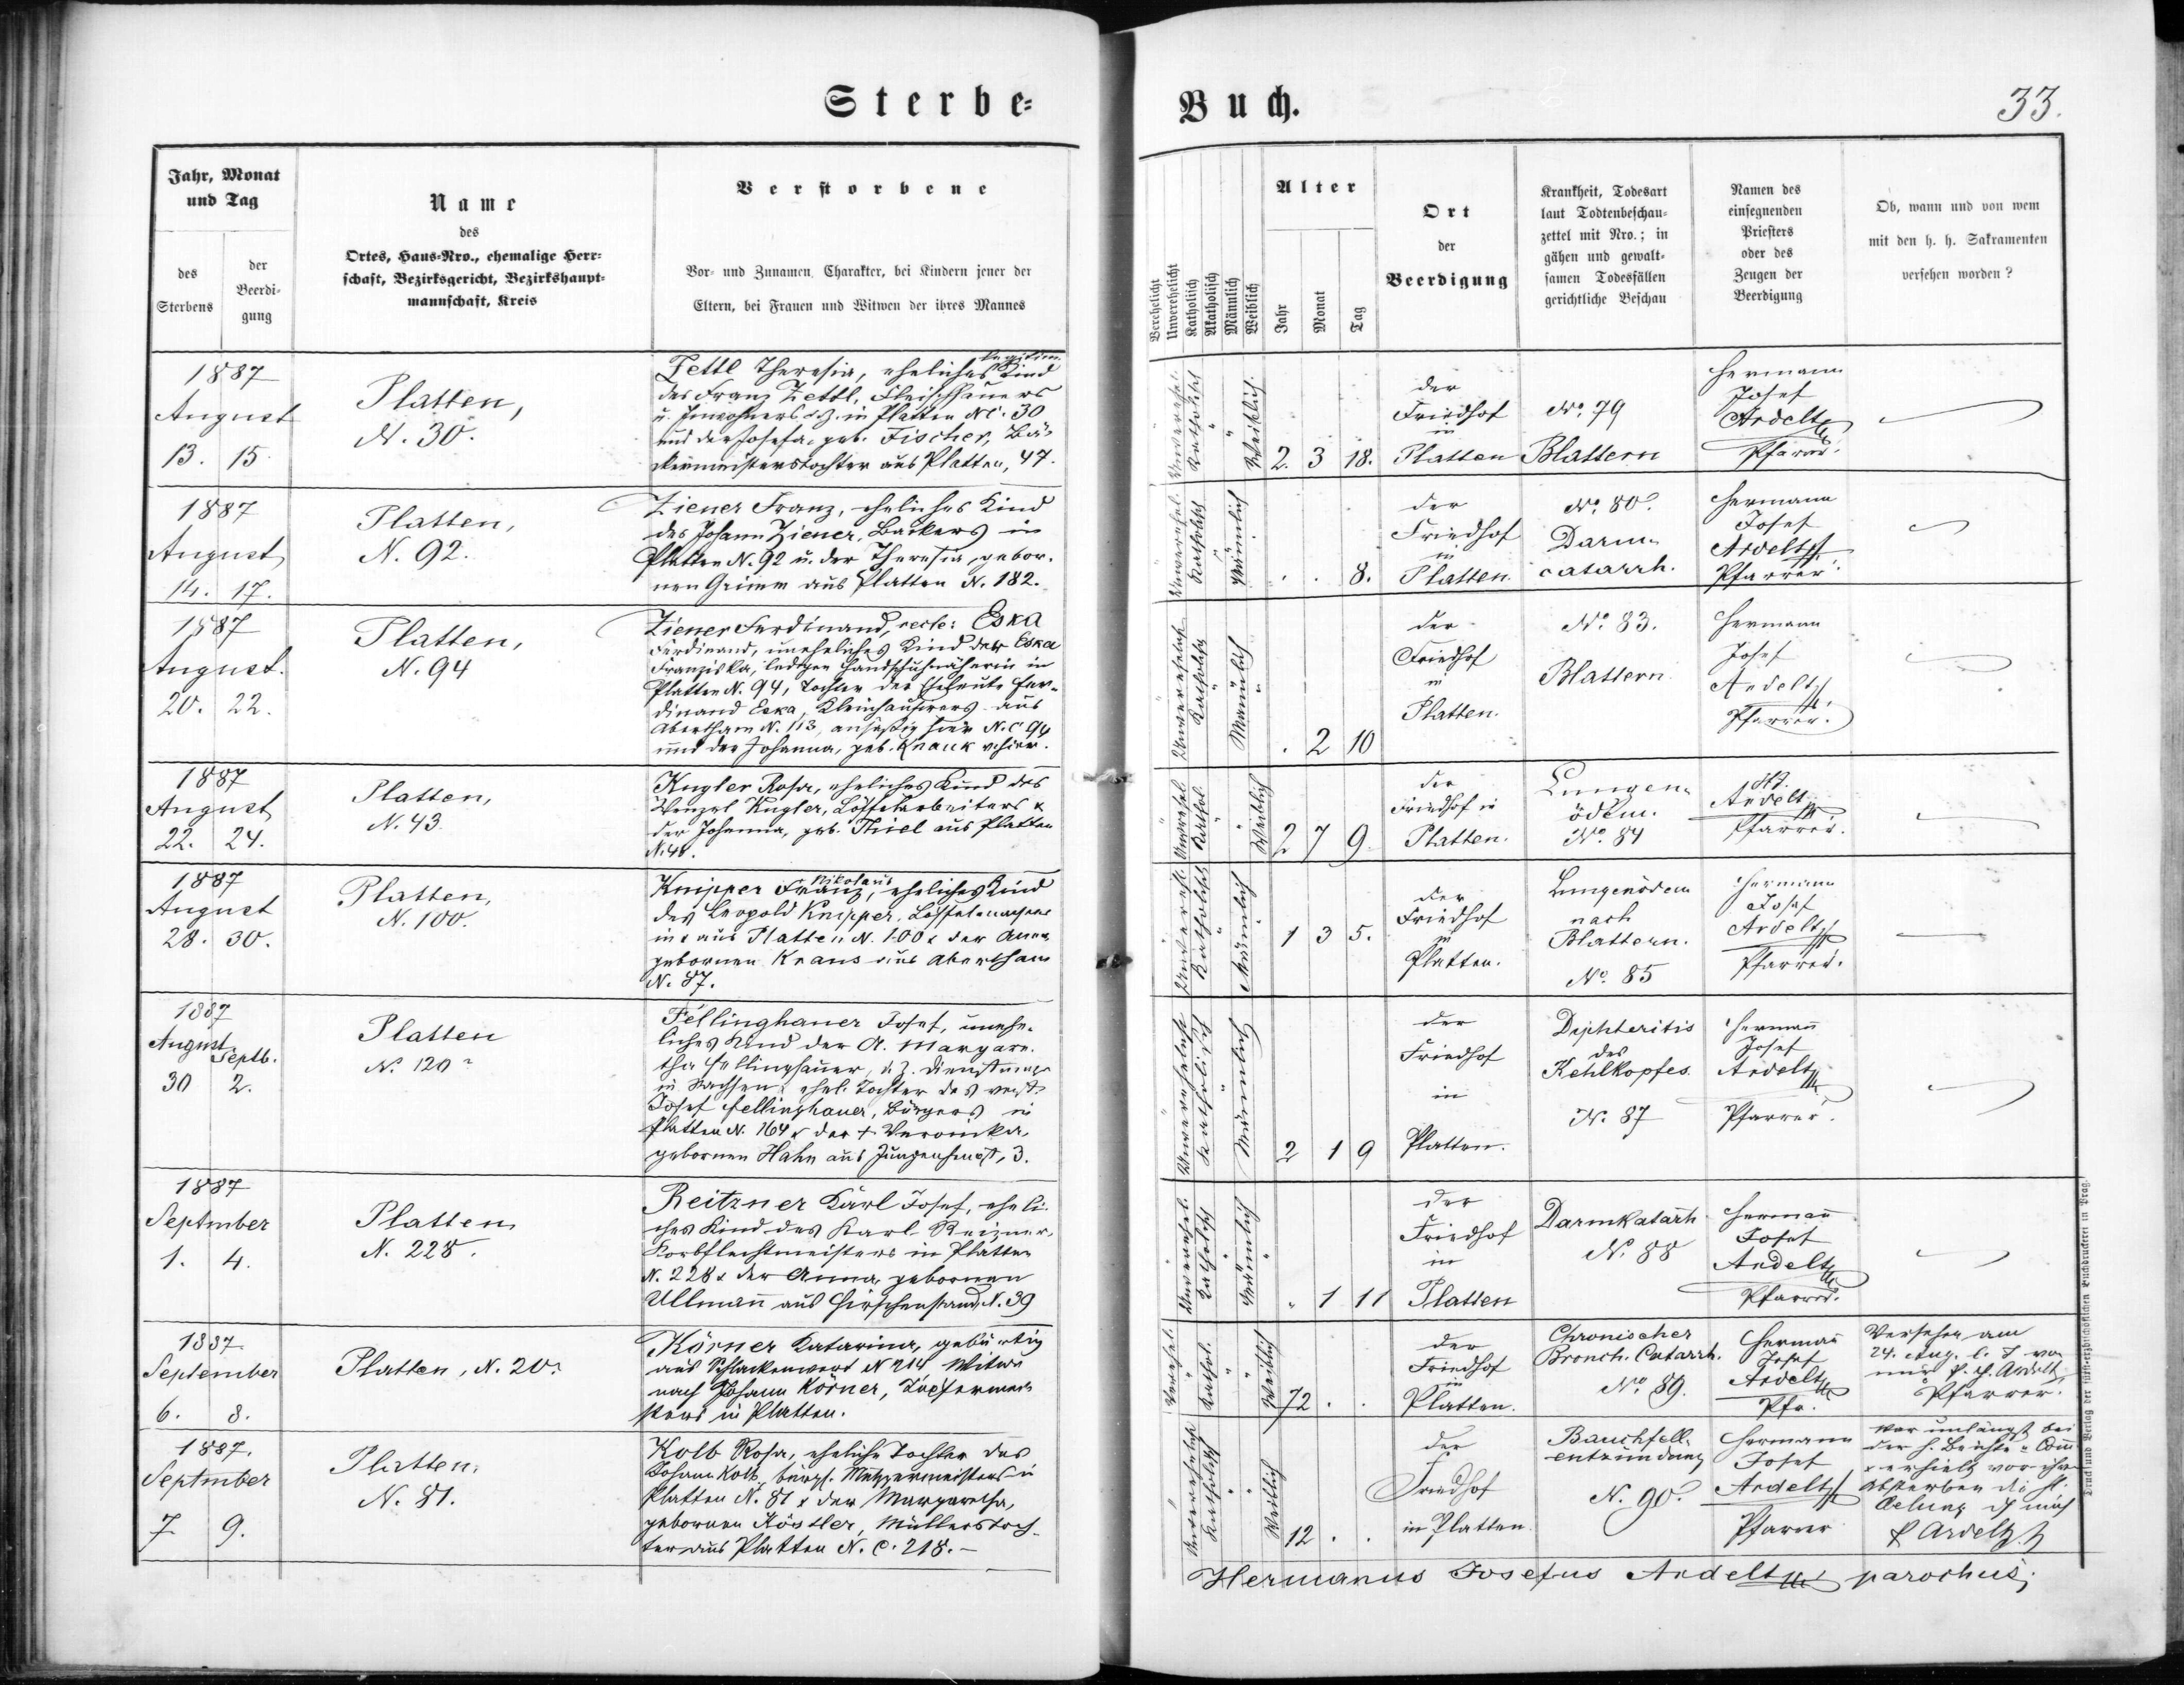 Sterbe-
Buch.
33.
Jahr, Monat
und Tag
des
Sterbens
der
Beerdi-
gung
Name
des
Ortes, Haus-Nro., ehemalige Herr-
schaft, Bezirksgericht, Bezirkshaupt-
mannschaft, Kreis
Verstorbene
Vor- und Zunamen, Charakter, bei Kindern jener der
Eltern, bei Frauen und Witwen der ihres Mannes
Verehelicht
Unverehelicht
Katholisch
Akatholisch
Männlich
Weiblich
Alter
Jahr
Monat
Tag
Ort
der
Beerdigung
Krankheit, Todesart
laut Todtenbeschau-
zettel mit Nro.; in
gähen und gewalt-
samen Todesfällen
gerichtliche Beschau
Namen des
einsegnenden
Priesters
oder des
Zeugen der
Beerdigung
Ob, wann und von wem
mit den h. h. Sakramenten
versehen worden?
1887
August
13. 15.
Platten,
N. 30.
Zettl Theresia, eheliches Kind
des Franz Zettl, Fleischhauers
u. Inwohners d. Z. in Platten NC. 30
und der Josefa, geb. Fischer, Bä-
ckermeisterstochter aus Platten, 47.
Weiblich.
2. 3 18.
der
Friedhof
in
Platten
No. 79
Blattern
Hermann
Josef
Ardelt
Pfarrer.
1887
August
14. 17.
Platten,
N. 92.
Ziener Franz, eheliches Kind
des Johann Ziener, Bäckers in
Platten N. 92 u. der Theresia, gebor-
nen Grimm aus Platten N. 182.
Katholisch
Männlich
. . 8.
der
Friedhof
in
Platten.
No. 80
Darm-
catarrh.
Hermann
Josef
Ardelt
Pfarrer.
1887
August.
20. 22.
Platten,
N. 94
Ziener Ferdinand, recte: Eska
Ferdinand, uneheliches Kind der Eska
Franziska, ledigen Handschuhnäherin in
Platten N. 94, Tochter der Eheleute Fer-
dinand Eska, Kleinhausirers aus
Abertham N. 113, ansäßig hier N.C 94
und der Johanna, geb. Knauk v. hier.
Katholisch
Männlich
. 2 10
der
Friedhof
in
Platten.
No. 83.
Blattern.
Hermann
Josef
Ardelt
Pfarrer.
1887
August
22. 24.
Platten,
N. 43.
Kugler Rosa, eheliches Kind des
Wenzel Kugler, Löffelarbeiters &
der Johanna, geb. Thiel aus Platten
Kathol.
Weiblich
2 7 9
der
Friedhof in
Platten.
Lungen-
ödem.
No. 84
Ardelt
Pfarrer.
1887
August
28. 30.
Platten,
N. 100.
Nikolaus
Knipper Franz, eheliches Kind
des Leopold Knipper, Löffelmachers
in & aus Platten N. 100 & der Anna
gebornen Kraus aus Abertham
N. 87.
Katholisch
Männlich
1 3 5.
der
Friedhof
in
Platten.
Lungenödem
nach
Blattern.
No. 85
Hermann
Josef
Ardelt
Pfarrer.
1887
August. Septb.
30 2.
Platten
No 120
Fellinghauer Josef, unehe-
liches Kind der A. Margare-
tha Fellinghauer, d. Z. Dienstmagd
in Sachsen, ehel. Tochter des verst.
Josef Fellinghauer, Bürgers in
Platten N. 164 & der + Veronika,
gebornen Hahn aus Jungenhengst, 3.
Unverehelicht
Katholisch
Männlich
2 1 9
der
Friedhof
in
Platten.
Diphteritis
des
Kehlkopfes.
N. 87
Hermann
Josef
Ardelt
Pfarrer.
1887
September
1. 4.
Platten
N. 228.
Reitzner Karl Josef, eheli-
ches Kind des Karl Reizner,
Korbflechtmeisters in Platten
N. 228 & der Anna, gebornen
Ullmann aus Hirschenstand, N. 39
Unverehel.
Katholisch
Männlich
. 1 11
der
Friedhof
in
Platten
Darmkatarrh
N. 88
Hermann
Josef
Ardelt
Pfarrer.
1887
September
6. 8.
Platten, N. 20.
Körner Katarina, gebürtig
aus Schlackenwerd N 214 Witwe
nach Johann Körner, Töpfermei-
sters in Platten.
Verehel.
Kathol.
Weiblich
72 . .
der
Friedhof
in
Platten.
Chronischer
Bronch. Catarrh.
No. 89.
Hermann
Josef
Ardelt
Pfr.
Versehen am
24. Aug. l. J von
mir P. H. Ardelt
Pfarrer.
1887.
September
7 9.
Platten,
N. 81.
Kolb Rosa, eheliche Tochter des
Johann Kolb, bürgl. Metzgermeisters in
Platten N. 81 & der Margaretha,
gebornen Köstler, Müllerstoch-
ter aus Platten N. C. 218. –
Unverehelicht
Katholisch
Weiblich
12 . .
der
Friedhof
in Platten.
Bauchfell-
entzündung
N. 90.
Hermann
Josef
Ardelt
Pfarrer
War unlängst bei
der h. Beichte
& erhielt vor ihrem
Absterben die hl.
Oelung durch mich
P Ardelt
Hermanus Josefus Ardelt parochus;
Druck und Verlag der fürst-erzbischöflichen Buchdruckerei in Prag.